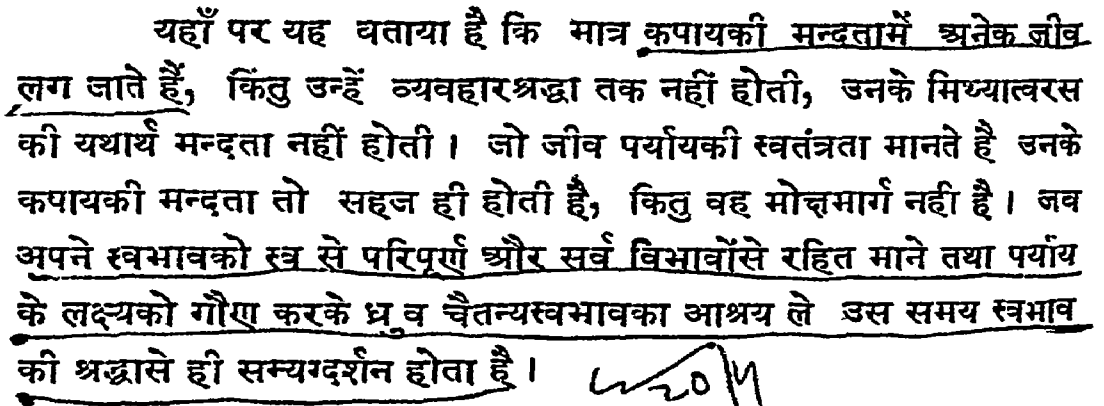 यहाँ पर यह वताया है कि मात्र कपायकी मन्दतामें अनेक जीव
लग जाते हैं, किंतु उन्हें व्यवहारश्रद्धा तक नहीं होती, उनके मिथ्यात्वरस
की यथार्थ मन्दता नहीं होती । जो जीव पर्यायकी स्वतंत्रता मानते है उनके
कपायकी मन्दता तो सहज ही होती है, किंतु वह मोक्षमार्ग नही है । जव
अपने स्वभावको स्व से परिपूर्ण और सर्व विभावोंसे रहित माने तथा पर्याय
के लक्ष्यको गौण करके ध्रुव चैतन्यस्वभावका आश्रय ले उस समय स्वभाव
की श्रद्धासे ही सम्यग्दर्शन होता है ।